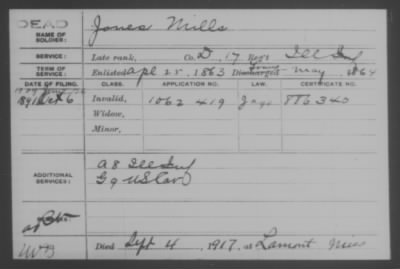 DEAD
NAME OF SOLDIER: Jones Mills
SERVICE: Late rank, Co. D, 17 Reg't Ill Inf
TERM OF SERVICE: Enlisted Apl 25, 1863 Discharged May, 1864
DATE OF FILING. CLASS. APPLICATION NO. LAW. CERTIFICATE NO.
1891 Oct 6 Invalid, 1062 419 886340
Widow,
Minor,
ADDITIONAL SERVICES: A 8 Ill Inf
G 9 US Cav
Died Sept 4, 1917, at Lamont Miss